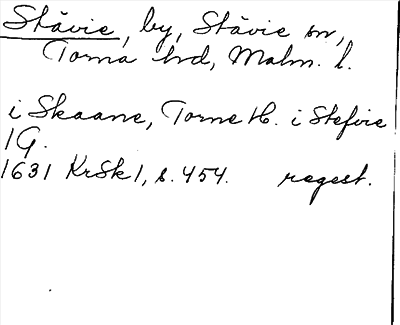 Stävie, by, Stävie sn,
Torna hd, Malm. l.
i Skaane, Torne H. i Stefvie
1 G.
1631 KrSk 1, s. 454. regest.